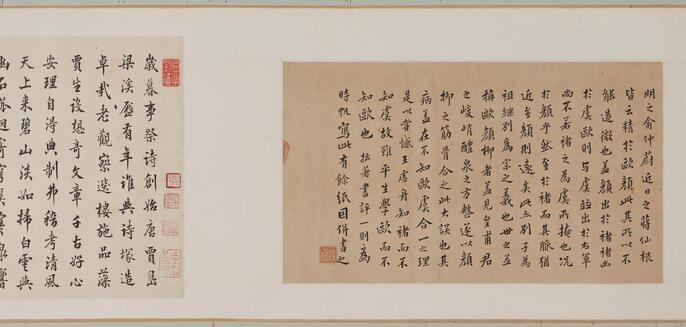 明之俞仲蔚近日之蔣仙根
皆云精於歐顏此其所以不
能造微也蓋顏出於褚褚出
於虞歐則与虞並出於右軍
而不若褚之為虞所掩也况
於顏乎然至於褚而其脈猶
近至顏則遠矣此亦別子為
祖繼別為宗之義也世之並
稱歐顏柳者蓋見皇甫君
之峻峭醴泉之方整遂以顏
柳之筋骨合之此大誤也其
病蓋在不知歐虞合一之理
是以嘗憾王虛舟知褚而不
知虞故雖平生學歐而不
知歐也 拙著書評一則為
時帆寫此有餘紙因併書之
歲暮事祭詩創始唐賈島
梁溪盛有年誰與詩塚造
卓哉老觀察樓施品藻
賈生設想奇文章千古好心
安理自得典制弗稽考清風
天上来碧山淡如掃白雲與